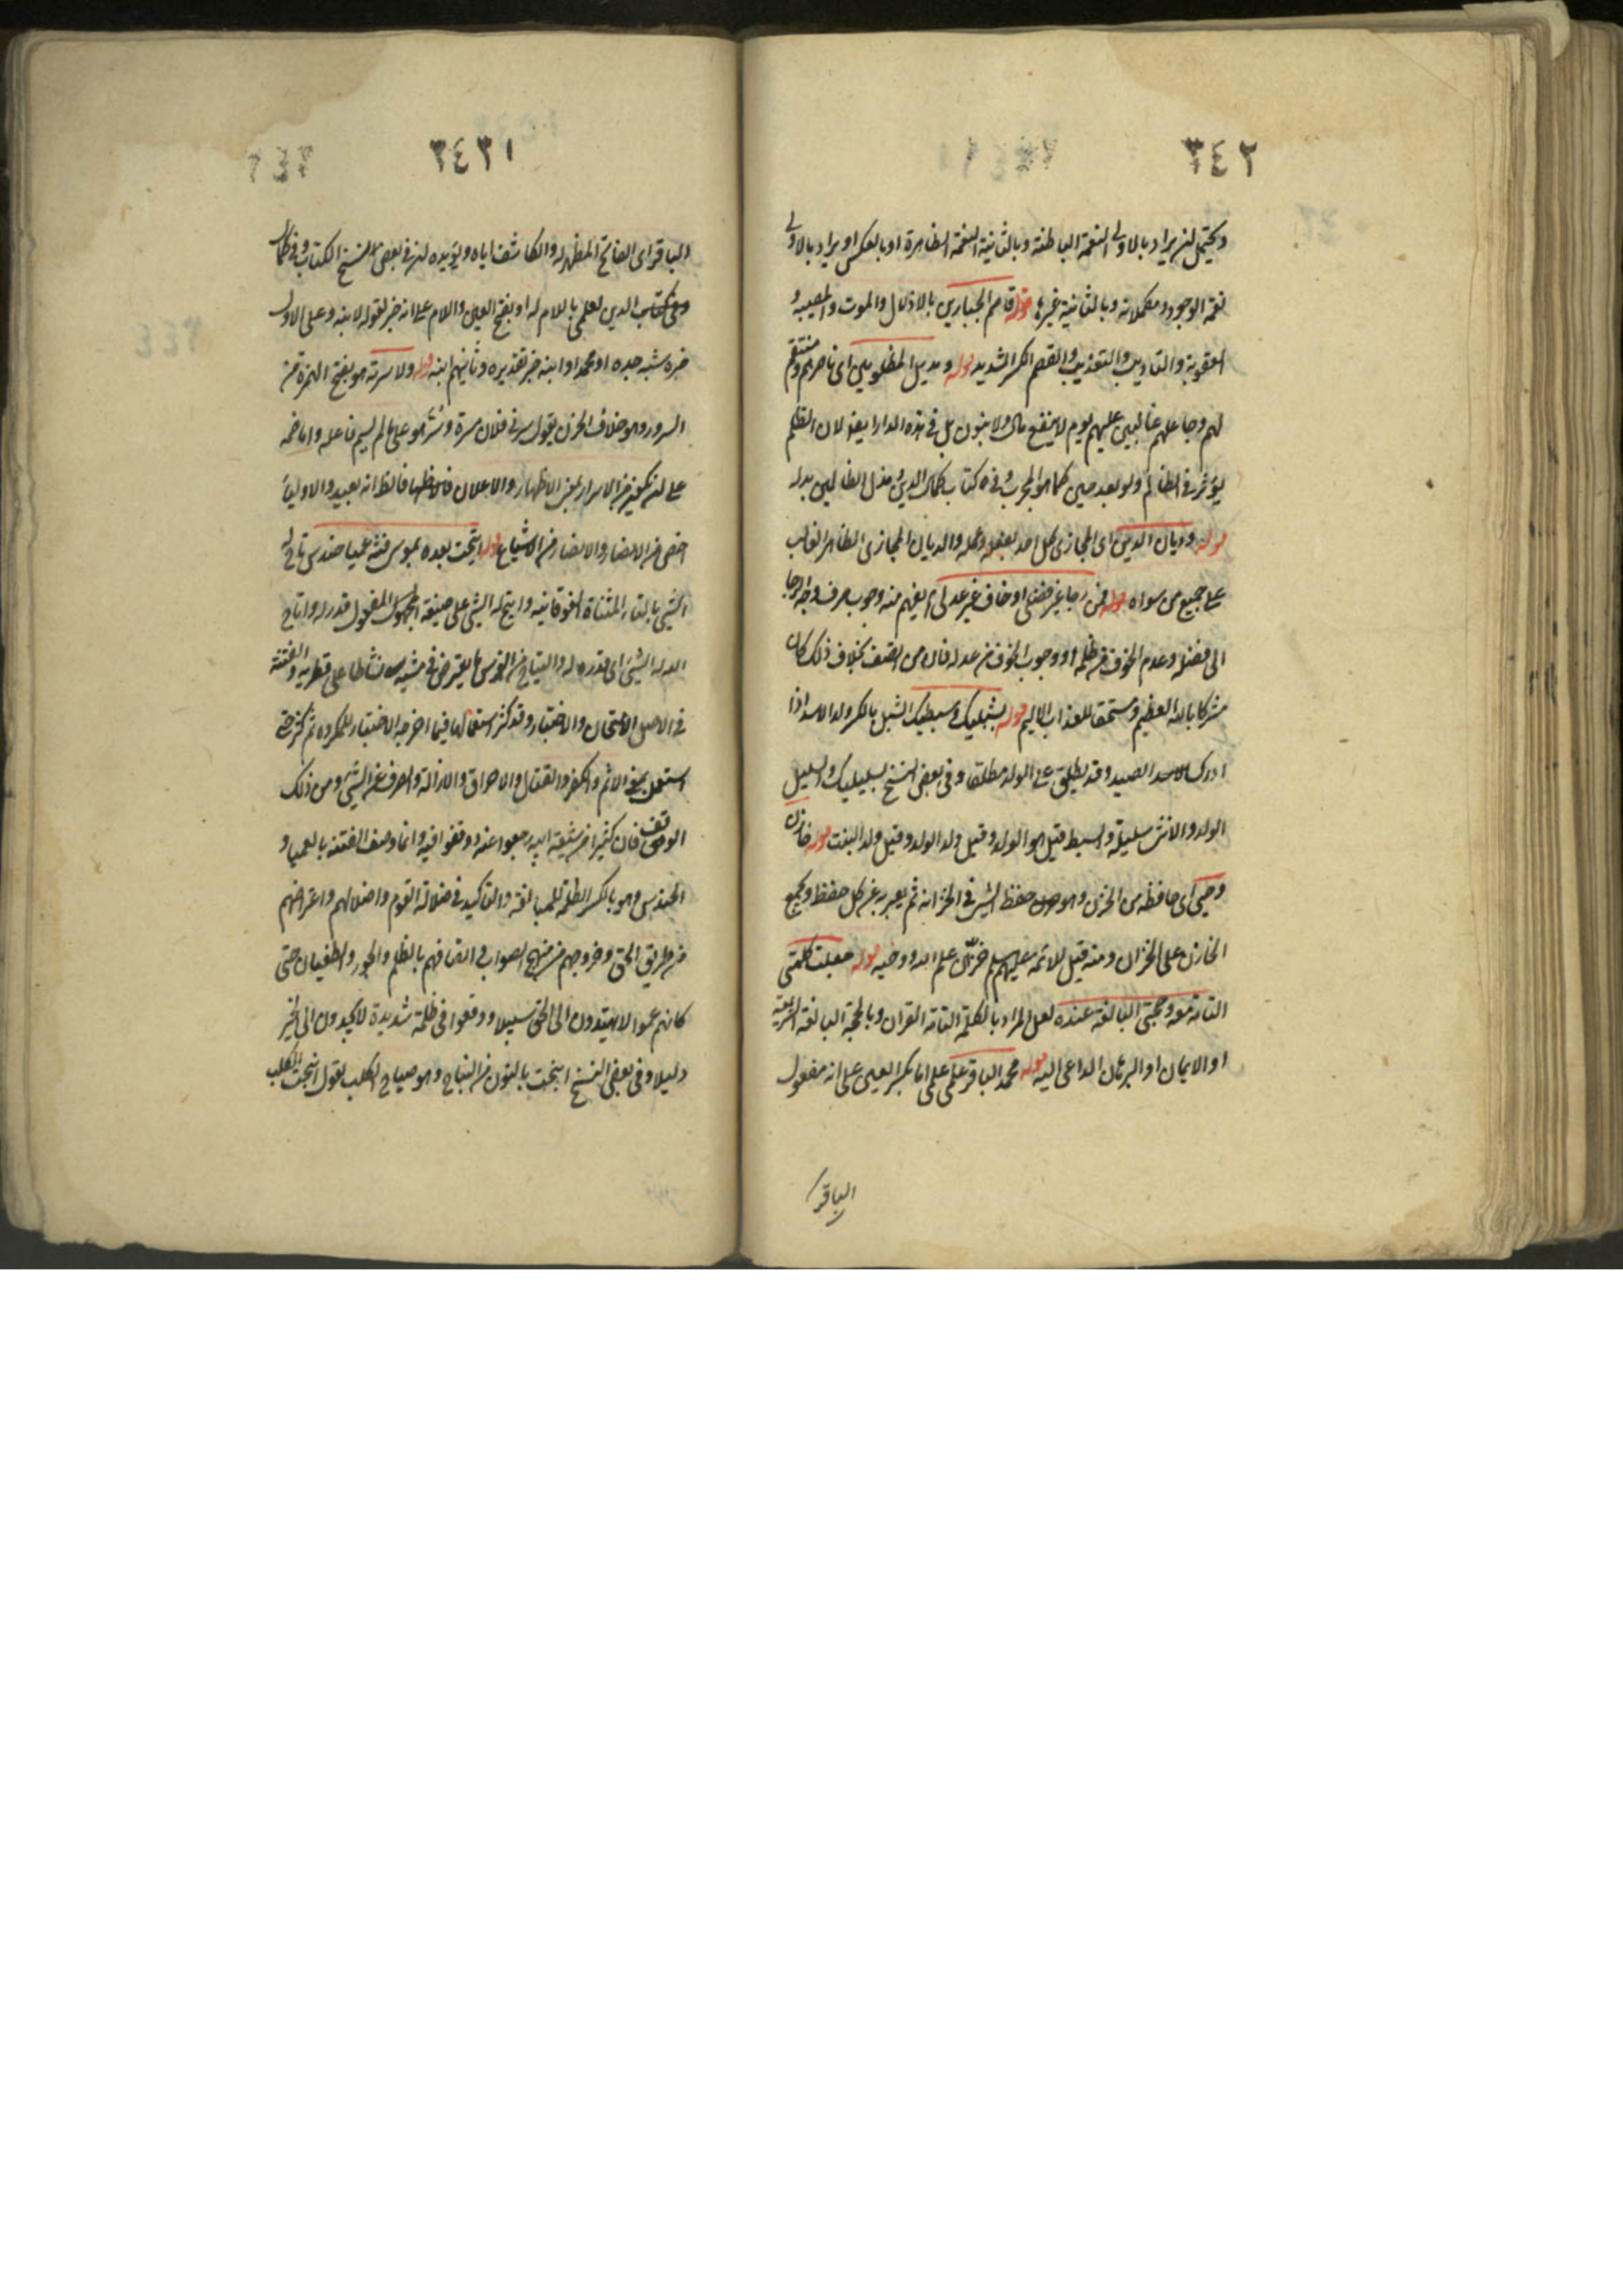 ٣٤٢
ويحتمل ان يراد بالاولى النعمة الباطنة وبالثانية النعمة الظاهرة او بالعكس او يراد بالاولى
نعمة الوجود ومكملاته وبالثانية غيرها قوله قاصم الجبارين بالاذلال والموت والمصيبة و
العقوبة والتاديب والتعذيب والقصم الكسر الشديد قوله ومديل المظلومين اى ناصرهم ومنتقم
لهم وجاعلهم غالبين عليهم يوم لا ينفع مال ولا بنون بل فى هذه الدار ايضا لان الظلم
يؤثر فى الظالم ولو بعد حين كما هو المجرب وفى كتاب كمال الدين مذل الظالمين بدله
قوله وديان الدين اى المجازى لكل احد بفعله وعمله والديان المجازى الظاهر الغالب
على جميع من سواه قوله فمن رجا غير فضلى او خاف غير عدلى يفهم منه وجوب صرف وجه الرجا
الى فضله وعدم الخوف من ظلمه او وجوب الخوف من عدله فان من اتصف بخلاف ذلك كان
مشركا بالله العظيم ومستحقا للعذاب الاليم قوله بشبليك وسبطيك الشبل بالكسر ولد الاسد اذا
ادرك الاسد الصيد وقد يطلق على الولد مطلقا وفى بعض النسخ بسليليك والسليل
الولد والانثى سليلة والسبط قيل هو الولد وقيل ولد الولد وقيل ولد البنت قوله خازن
وحيى اى حافظه من الخزن وهو حفظ الشئ فى الخزانه ثم يعبر به عن كل حفظ ويجمع
الخازن على الخزان ومنه قيل للائمة عليهم السلم خزان علم الله ووحيه قوله جعلت كلمتى
التامة معه وحجتى البالغة عنده لعل المراد بالكلمة التامة القران وبالحجة البالغة الشريعة
او الايمان او البرهان الداعى اليه قوله محمد الباقر علمى علمى اما بكسر العين على انه مفعول
الباقر
٣٤٣١
الباقر اى الفاتح المظهر له والكاشف اياه ويؤيده ان فى بعض نسخ الكتاب وفى كمال
وفى كتاب الدين لعلمى باللام له او بفتح العين واللام على انه خبر لقوله لابنه وعلى الاول
خبره شبه جده او محمد او ابنه خبر تقديره وثانيهم ابنه قوله ولاسرنه هو بفتح الهمزة من
السرور وهو خلاف الحزن يقول سرنى فلان مسرة وسر هو على ما لم يسم فاعله واما ضمه
على ان يكون من الاسرار بمعنى الاظهار والاعلان فالظاهر انه بعيد والاولياء
اخص من الانصار والانصار من الاشياع قوله اتيحت بعده بموسى فتنة عمياء حندس تاح له
الشئ بالتاء المثناة الفوقانيه واتيح له الشئ على صيغة المجهول المفعول قدر له واتاح
الله له الشئ اى قدره له والتياح من الفرس ما يعترض فى مشيه نشاطا على قطريه والفتنة
فى الاصل الامتحان والاختبار وقد كثر استعمالها فيما اخرجه الاختبار للمكروه ثم كثر حتى
استعمل بمعنى الاثم والكفر والقتال والاحراق والازالة والصرف عن الشئ ومن ذلك
الوقف فان كثيرا من شيعة ابيه رجعوا عنه ووقفوا فيه وانما وصف الفتنة بالعمياء و
الحندس وهو بالكسر الظلمة للمبالغة والتاكيد فى ضلالة القوم واضلالهم واعتراضهم
عن طريق الحق وخروجهم من منهج الصواب فى اتصافهم بالظلم والجور والطغيان حتى
كانهم عموا لا يهتدون الى الحق سبيلا ووقعوا فى ظلمة شديدة لا يجدون الى الخير
دليلا وفى بعض النسخ انبحت بالنون من النباح وهو صياح الكلب تقول انبحت الكلب